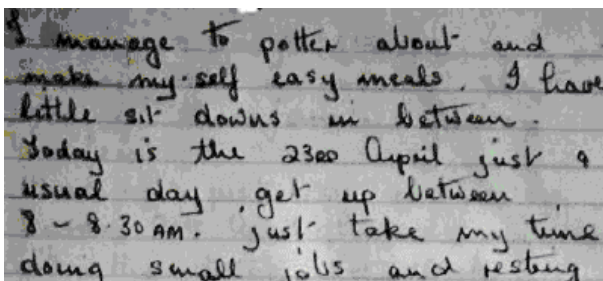 I manage to potter about and
make my-self easy meals. I have
little sit downs in between.
Today is the April just a
usual day, get up between
8 - 8.30 AM. just take my time
doing small jobs and resting